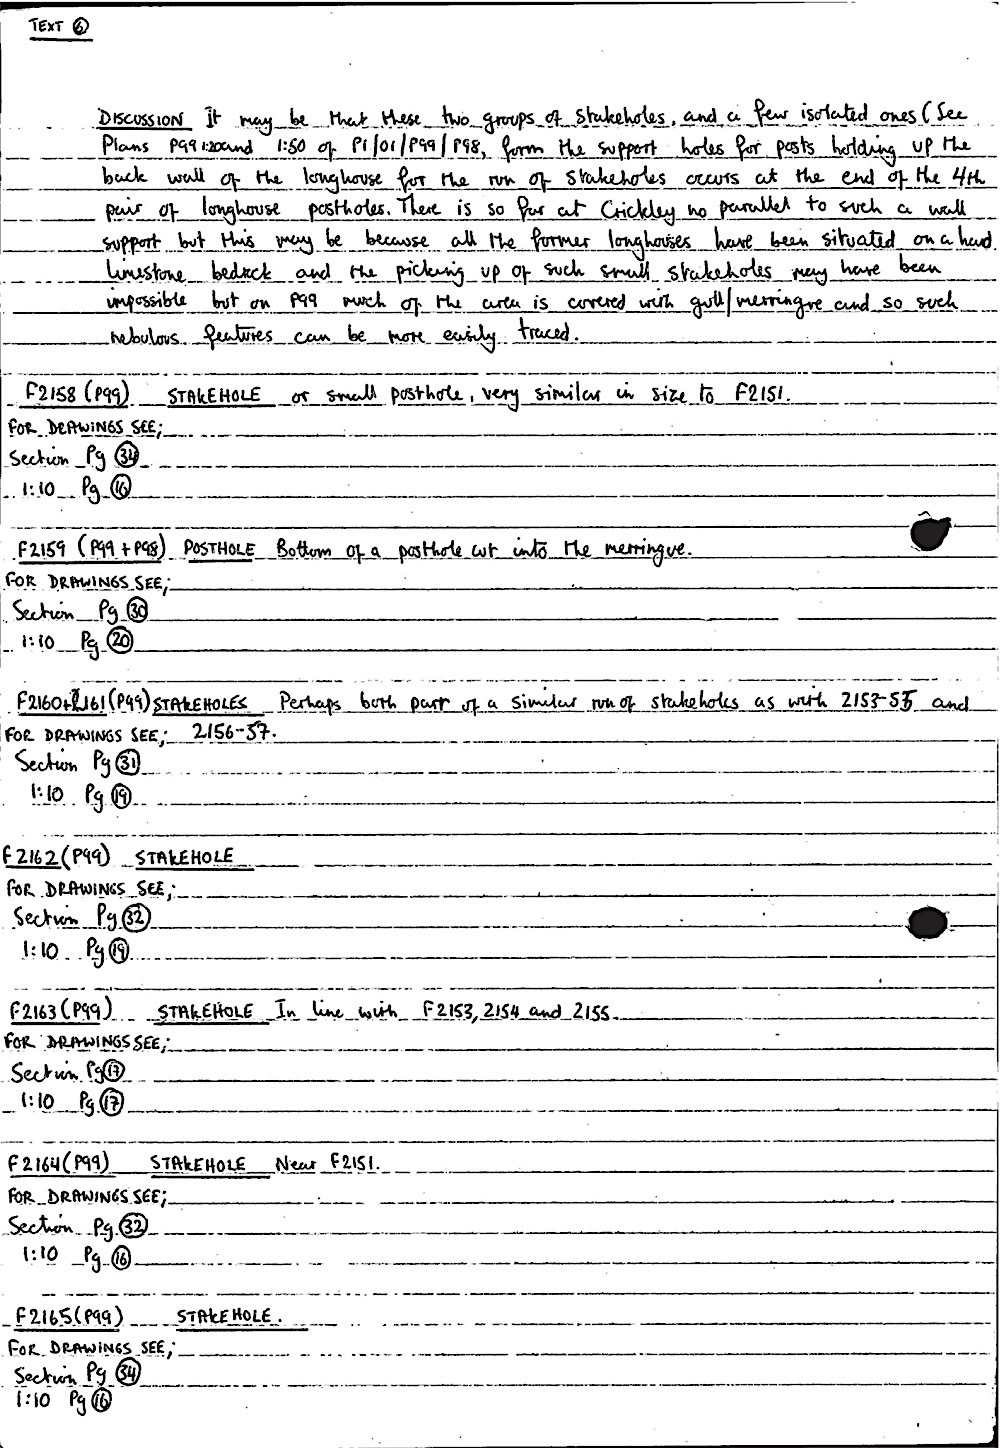 TEXT 6
DISCUSSION It may be that these two groups of stakeholes, and a few isolated ones (See
Plans P99 1:20 and 1:50 of P1/01/P99/P98, form the support holes for posts holding up the
back wall of the longhouse for the run of stakeholes occurs at the end of the 4th
pair of longhouse postholes. There is so far at Crickley no parallel to such a wall
support but this may be because all the former longhouses have been situated on a hard
limestone bedrock and the picking up of such small stakeholes may have been
impossible but on P99 much of the area is covered with gull/merringve and so such
nebulous features can be more easily traced.
F2158 (P99) STAKEHOLE or small posthole, very similar in size to F2151.
FOR DRAWINGS SEE;
Section Pg 34
1:10 Pg 16
F2159 (P99 + P98) POSTHOLE Bottom of a posthole cut into the merringve.
FOR DRAWINGS SEE;
Section Pg 30
1:10 Pg 20
F2160+2161 (P99) STAKEHOLES Perhaps both part of a similar run of stakeholes as with 2153-55 and
FOR DRAWINGS SEE; 2156-57.
Section Pg 31
1:10 Pg 19
F2162 (P99) STAKEHOLE
FOR DRAWINGS SEE;
Section Pg 32
1:10 Pg 19
F2163 (P99) STAKEHOLE In line with F2153, 2154 and 2155.
FOR DRAWINGS SEE;
Section Pg 17
1:10 Pg 17
F2164 (P99) STAKEHOLE Near F2151.
FOR DRAWINGS SEE;
Section Pg 32
1:10 Pg 16
F2165 (P99) STAKEHOLE.
FOR DRAWINGS SEE;
Section Pg 34
1:10 Pg 16